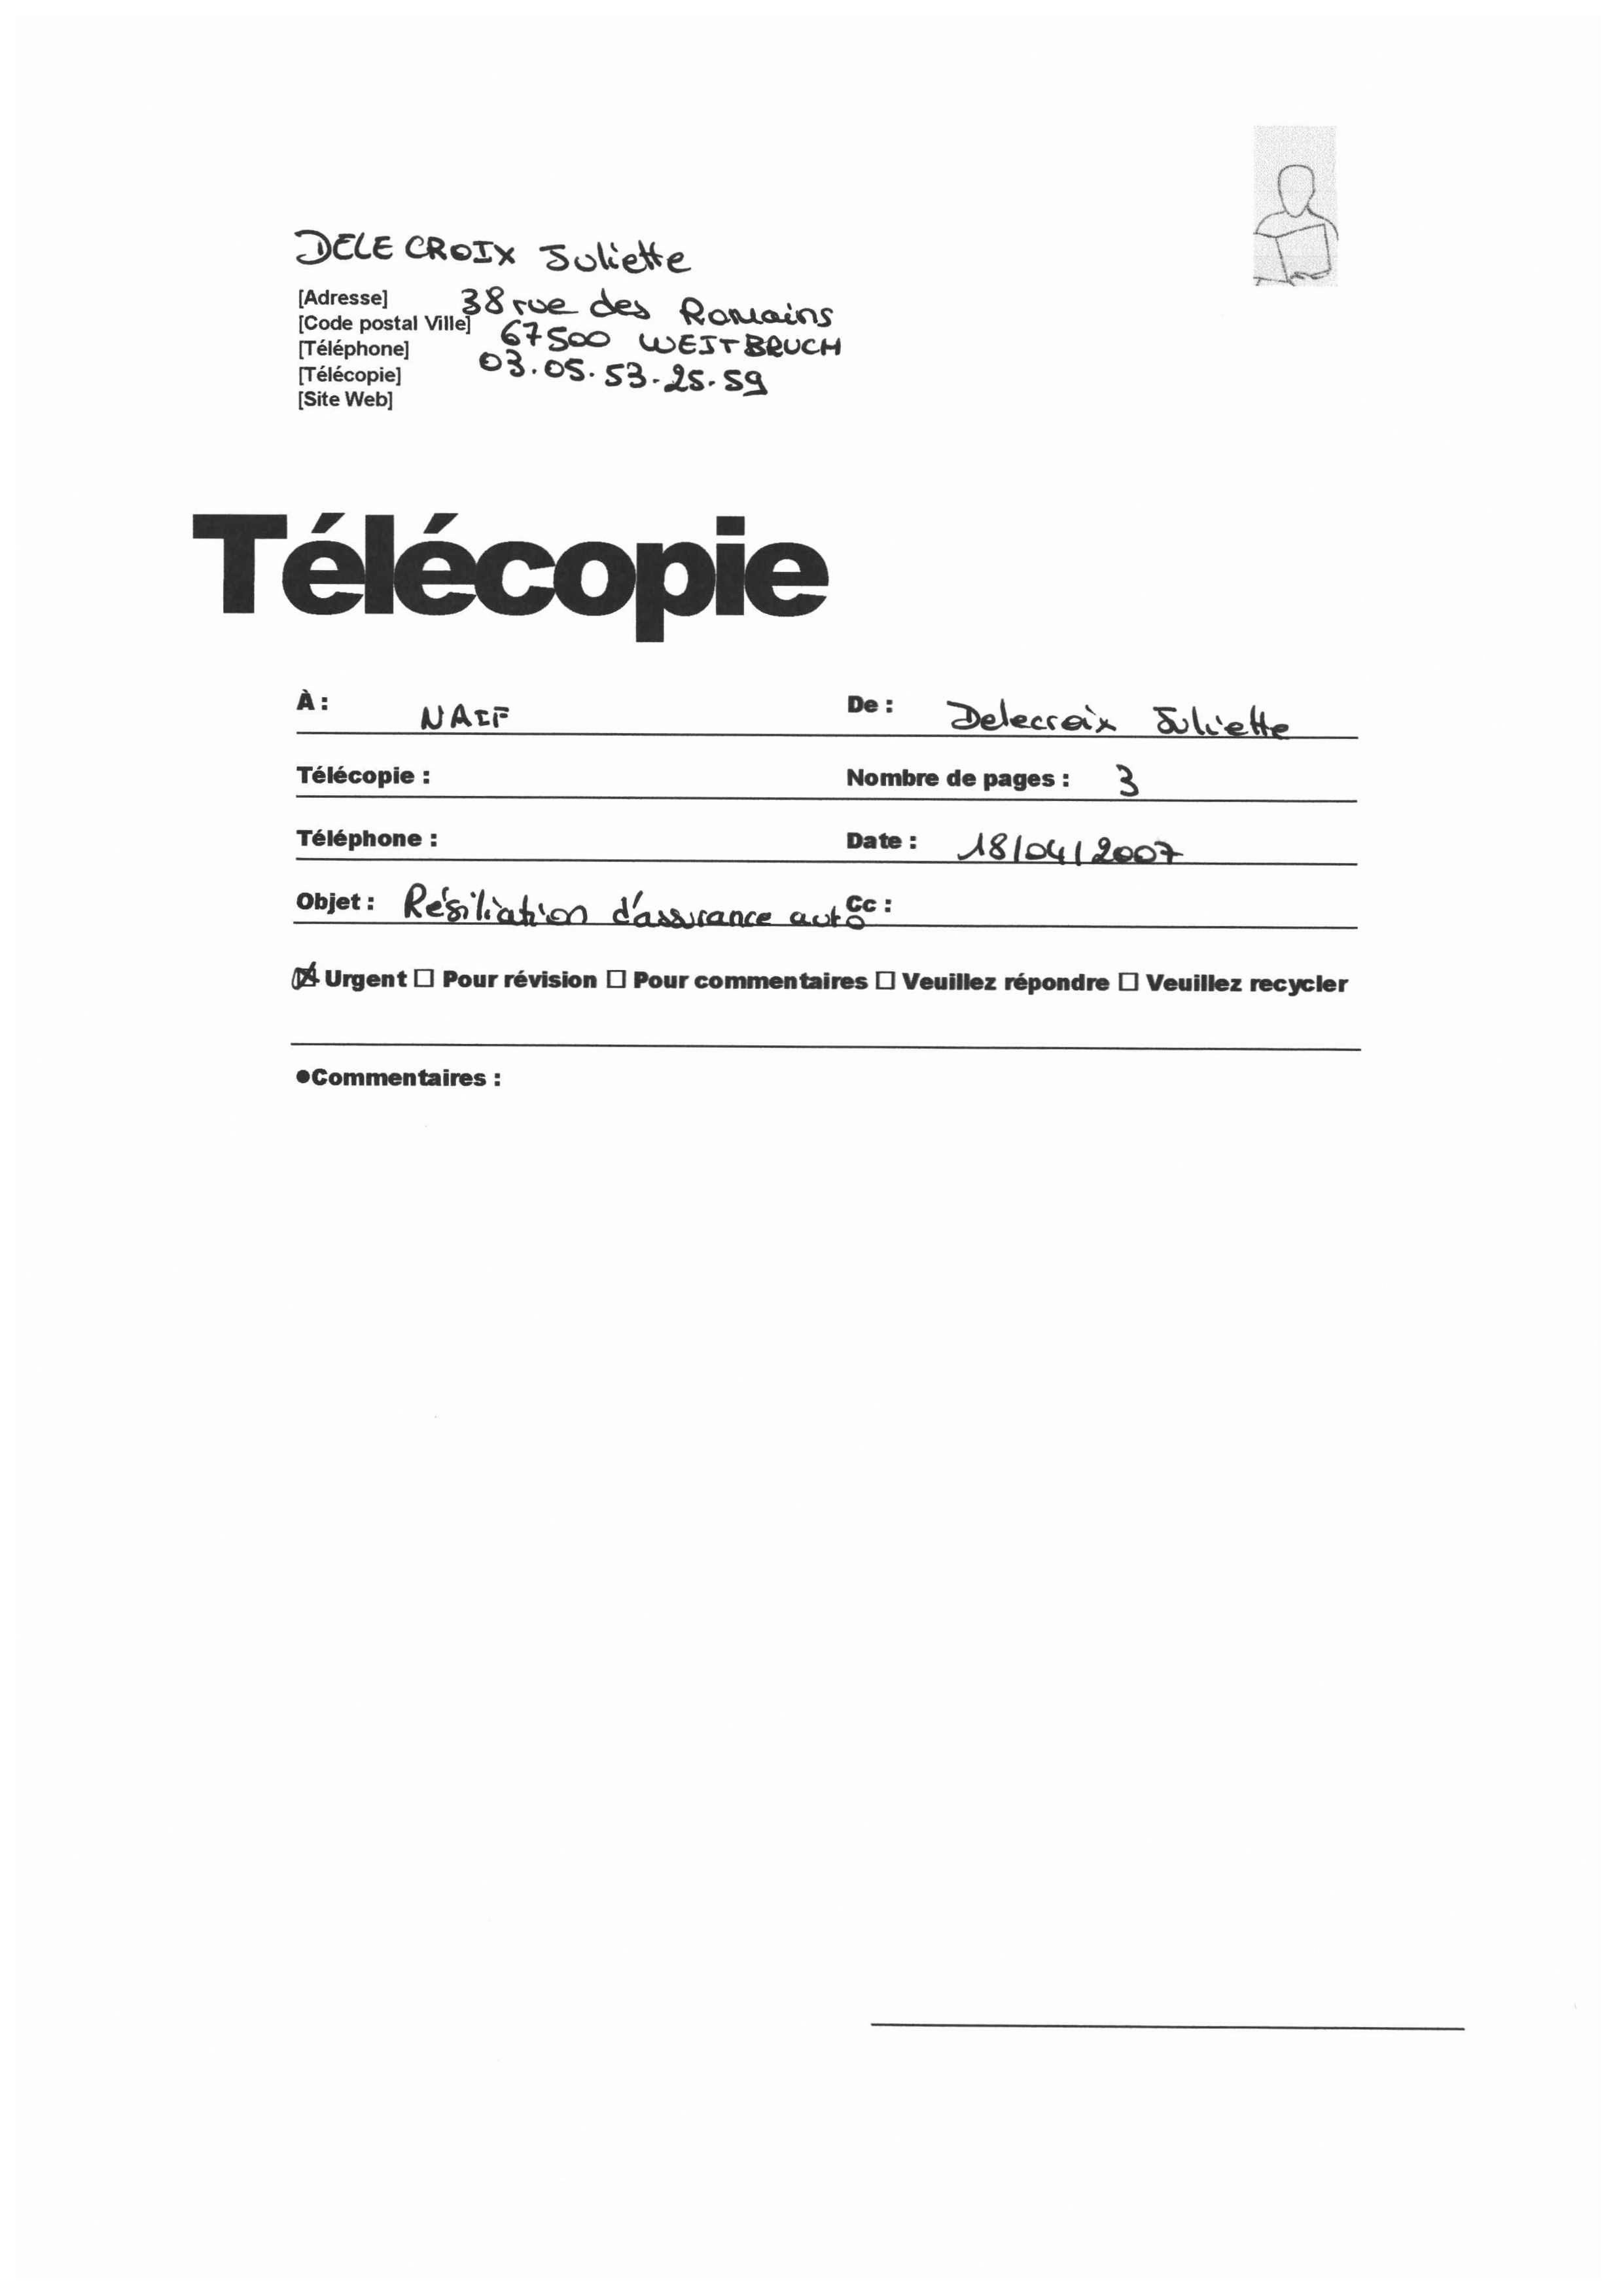 DELECROIX Juliette
[Adresse] 38 rue des Romains
[Code postal Ville] 67500 WEITBRUCH
[Téléphone] 03.05.53.25.59
[Télécopie]
[Site Web]
Télécopie
À : NAIF De : Delecroix Juliette
Télécopie : Nombre de pages : 3
Téléphone : Date : 18/04/2007
Objet : Résiliation d'assurance auto Cc :
☒ Urgent ☐ Pour révision ☐ Pour commentaires ☐ Veuillez répondre ☐ Veuillez recycler
●Commentaires :